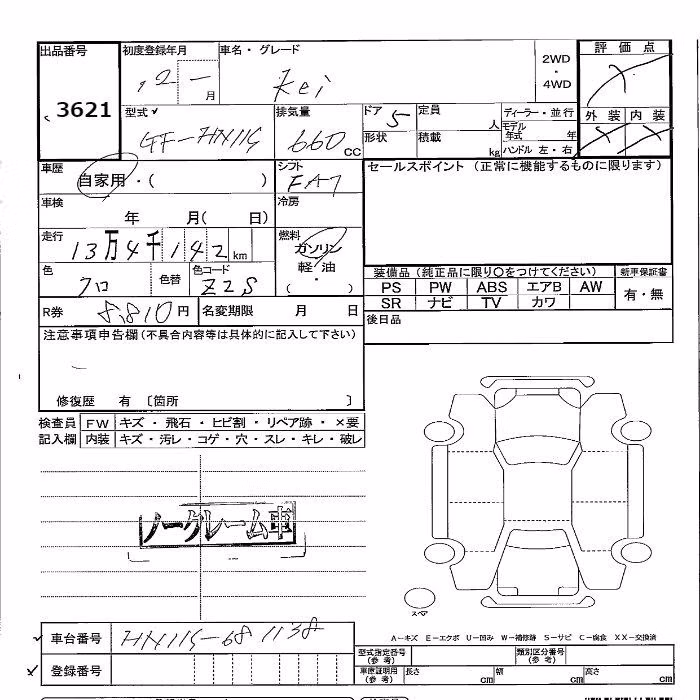 出品番号 初度登録年月 車名・グレード 2WD・4WD 評価点
3621 12 - 1 月 Kei
型式 排気量 ドア 定員 ディーラー・並行 外装 内装
GF-HN11S 660 cc 5 人 モデル年式 年
形状 積載 kg ハンドル 左・右
車歴 シフト セールスポイント (正常に機能するものに限ります)
自家用・( ) FA7
車検 冷房
年 月( 日)
走行 燃料
13万4千142km ガソリン
色 色替 色コード 軽油
クロ Z2S ・( )
装備品 (純正品に限り○をつけてください) 新車保証書
PS PW ABS エアB AW 有・無
SR ナビ TV カワ
R券 8,810円 名変期限 月 日
後日品
注意事項申告欄(不具合内容等は具体的に記入して下さい)
修復歴 有 〔箇所 〕
検査員 FW キズ・飛石・ヒビ割・リペア跡・×要
記入欄 内装 キズ・汚レ・コゲ・穴・スレ・キレ・破レ
ノークレーム車
スペア
車台番号 HN11S-681138
A-キズ E-エクボ U-凹み W-補修跡 S-サビ C-腐食 XX-交換済
型式指定番号(参考) 類別区分番号(参考)
登録番号
車庫証明用(参考) 長さ cm 幅 cm 高さ cm